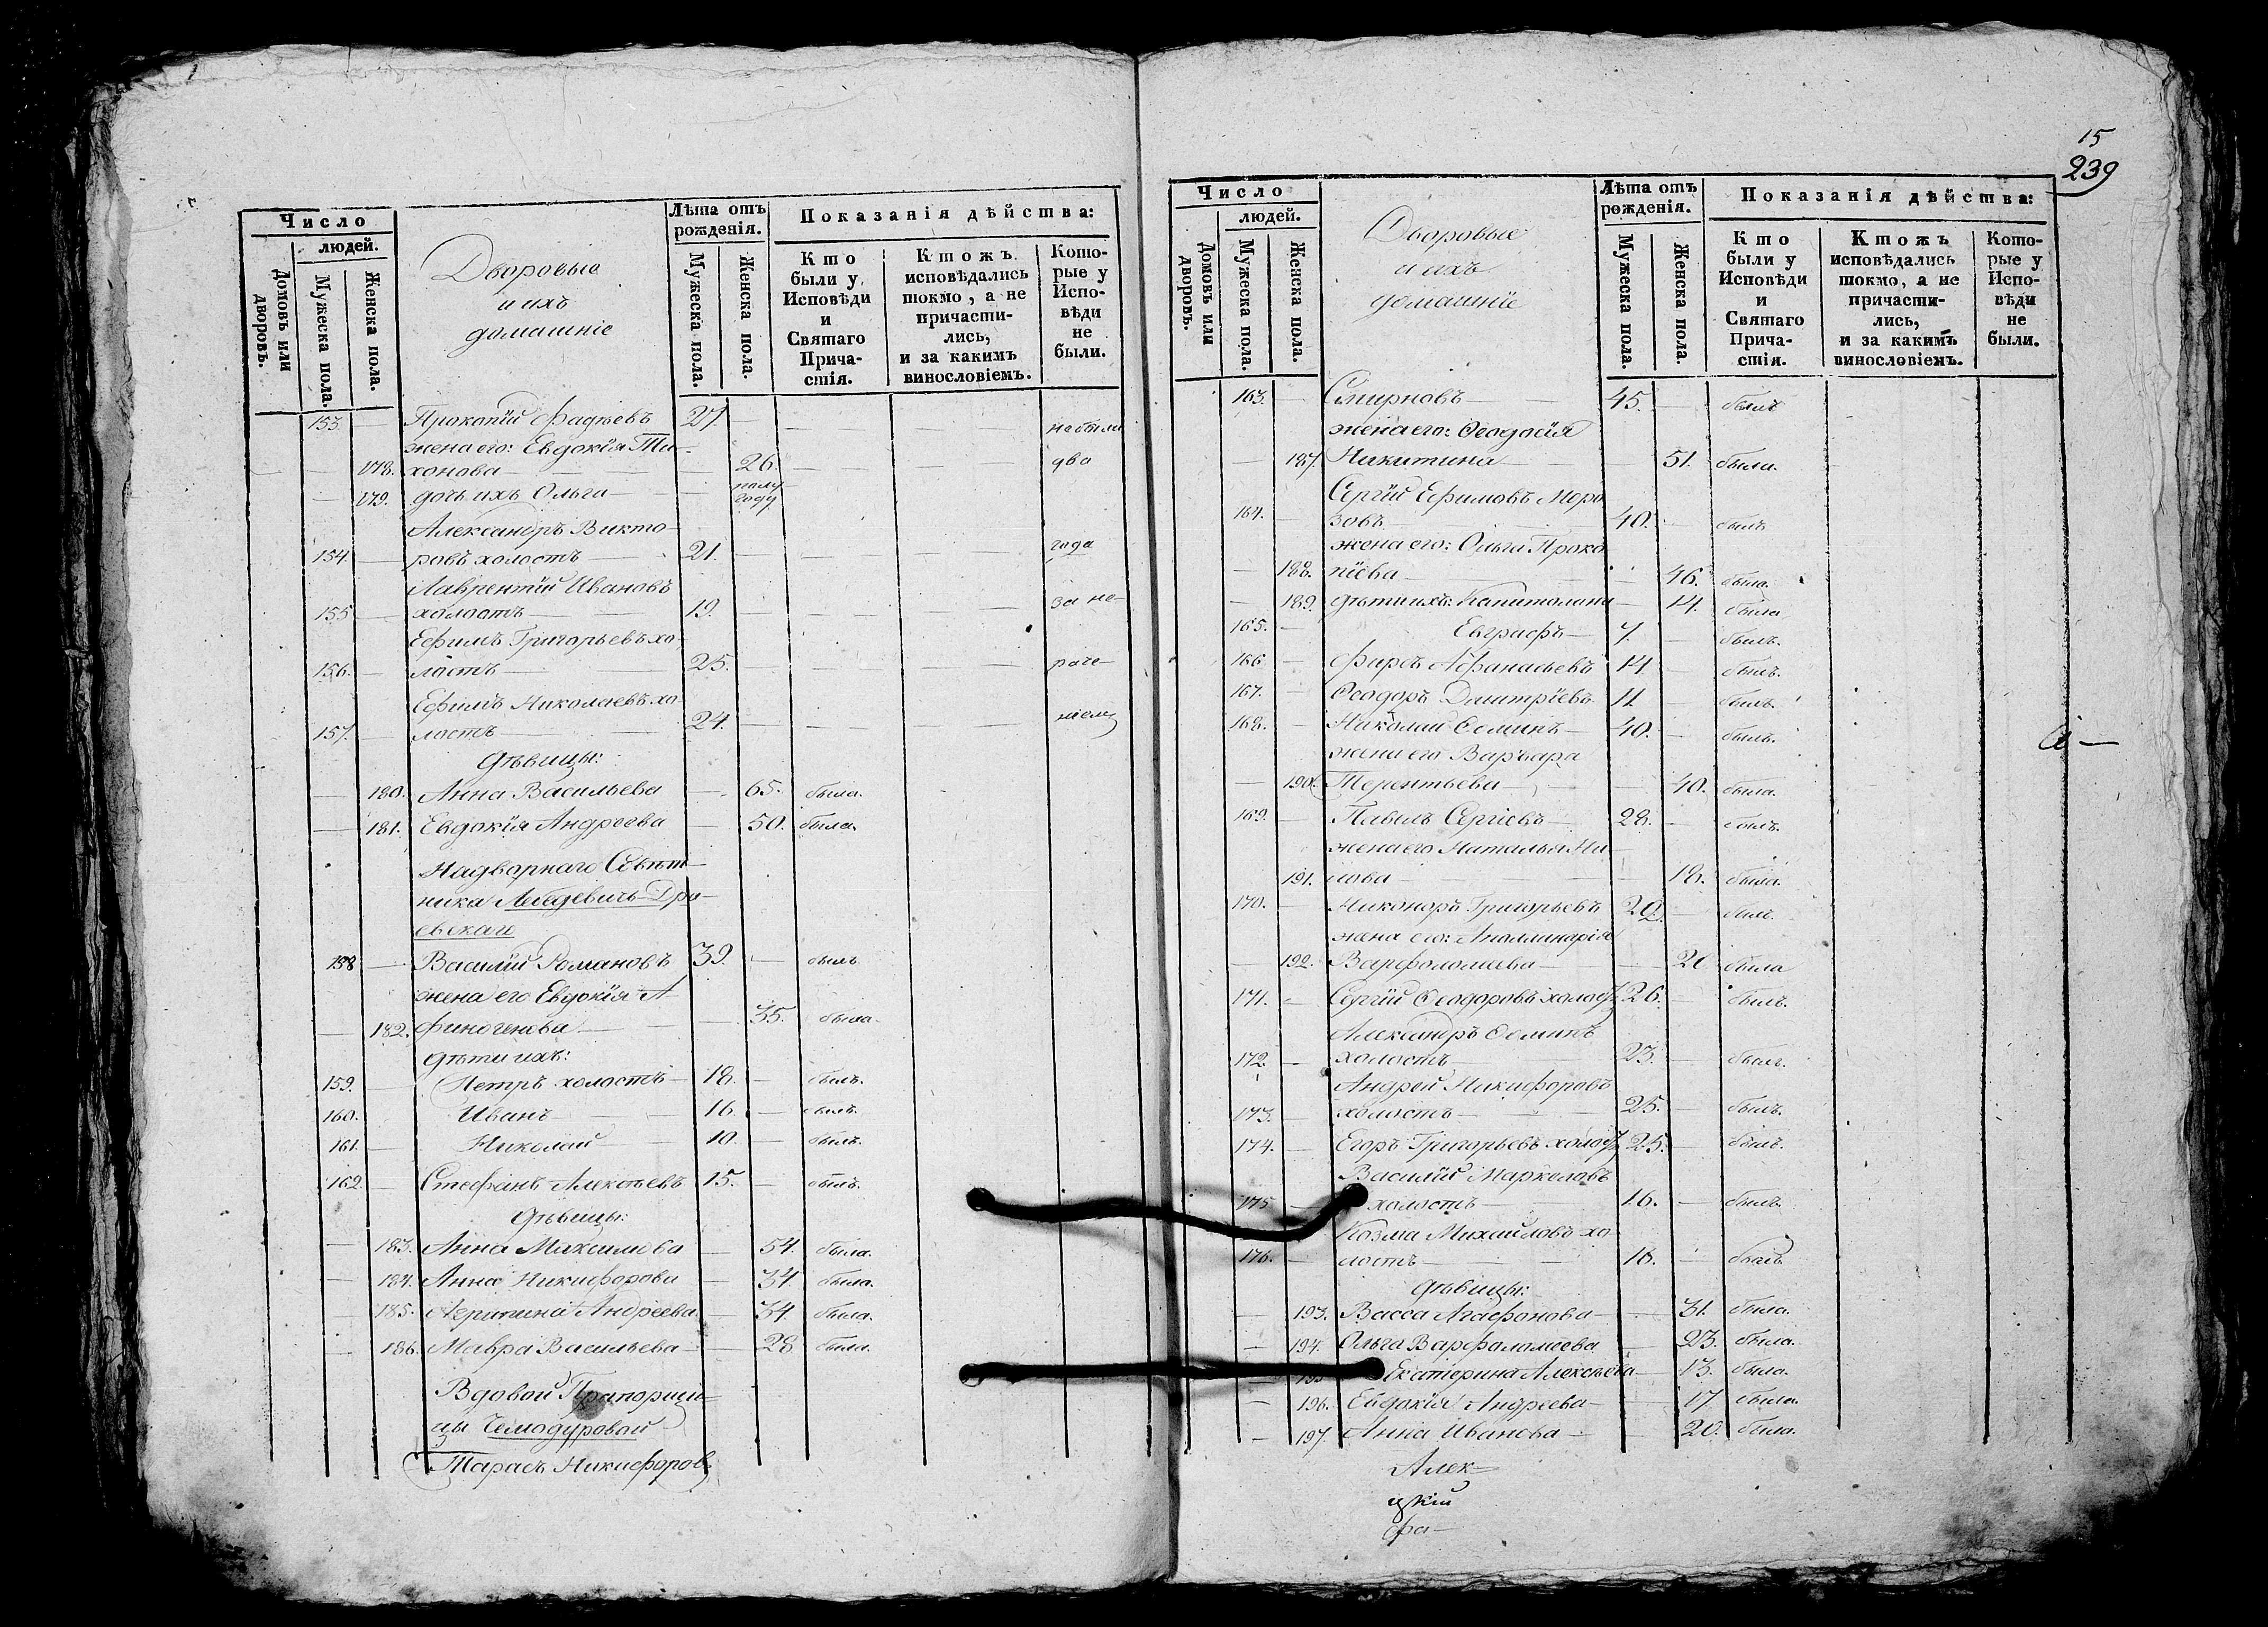 Число
людей.
Домовъ или дворовъ.
Мужеска пола.
Женска пола.
Дворовые
и ихъ
домашніе
Лѣта отъ рожденія.
Мужеска пола.
Женска пола.
Показанія дѣйства:
Кто были у Исповѣди и Святаго Прича-стія.
Ктожъ исповѣдались токмо, а не причасти-лись, и за какимъ винословіемъ.
Кото-рые у Испо-вѣди не были.
153. Прокопій Фадѣевъ 27. небыли
жена его: Евдокія Ти-
178. хонова 26. два
179. дочь ихъ Ольга полу году
Александръ Викто-
154. ровъ холостъ 21. года
Лаврентій Ивановъ
155 холостъ 19. за не-
Ефимъ Григорьевъ хо-
156. лостъ 25. раче-
Ефимъ Николаевъ хо-
157. лостъ 24. ніемъ
Дѣвицы:
180. Анна Васильева 65. была.
181. Евдокія Андреева 50. была.
Надворнаго Совѣт-
ника
евскаго
158 Василій Романовъ 39. былъ
жена его Евдокія А-
182. финогенова 35. была
дѣти ихъ:
159. Петръ холостъ 18. былъ.
160. Иванъ 16. былъ.
161. Николай 10. былъ.
162. Стефанъ Алексѣевъ 15. былъ.
Дѣвицы:
183. Анна Максимова 54. была.
184. Анна Никифорова 34. была.
185. Агрипина Андреева 34. была.
186. Мавра Васильева 28 была.
Вдовой Прапорщи-
цы Чемодуровой
Тарасъ Никифоровъ
15
239
Число
людей.
Домовъ или дворовъ.
Мужеска пола.
Женска пола.
Дворовые
и ихъ
домашніе
Лѣта отъ рожденія.
Мужеска пола.
Женска пола.
Показанія дѣйства:
Кто были у Исповѣди и Святаго Прича-стія.
Ктожъ исповѣдались токмо, а не причасти-лись, и за какимъ винословіемъ.
Кото-рые у Испо-вѣди не были.
163. Смирновъ 45. былъ
жена его: Ѳеодосія
187. Никитина 51. была.
Сергій Ефимовъ Моро
164. зовъ 40. былъ
жена его: Ольга Проко
188. піева 46. была.
189. дѣти ихъ: Капитолина 14. была
165. Евграфъ 7. былъ.
166 Фирсъ Афанасьевъ 14 былъ.
167. Ѳеодоръ Дмитріевъ 11 былъ.
168. Николай Ѳоминъ 40. былъ.
жена его Варвара
190. Терентьева 40. была.
169. Павелъ Сергіевъ 28. былъ.
жена его Наталья Ни-
191. лова 18. была.
170. Никоноръ Григорьевъ былъ.
жена его: Аполлинарія
192. Варфоломеева была
171. Сергій Ѳеодоровъ холостъ 26. былъ.
Александръ Ѳоминъ
172. холостъ 23. былъ.
Андрей Никифоровъ
173. холостъ 25. былъ.
174. Егоръ Григорьевъ холостъ 25. былъ.
Василій Маркеловъ
175 холостъ 16. былъ.
Козма Михайловъ хо
176. лостъ 18. былъ
Дѣвицы:
193. Васса Агафонова 31. была.
194. Ольга Варфоломеева 23. была.
195 Екатерина Алексѣева 13. была.
196. Евдокія Андреева 17. была.
197. Анна Иванова 20. была.
Алек-
цкій
фа-